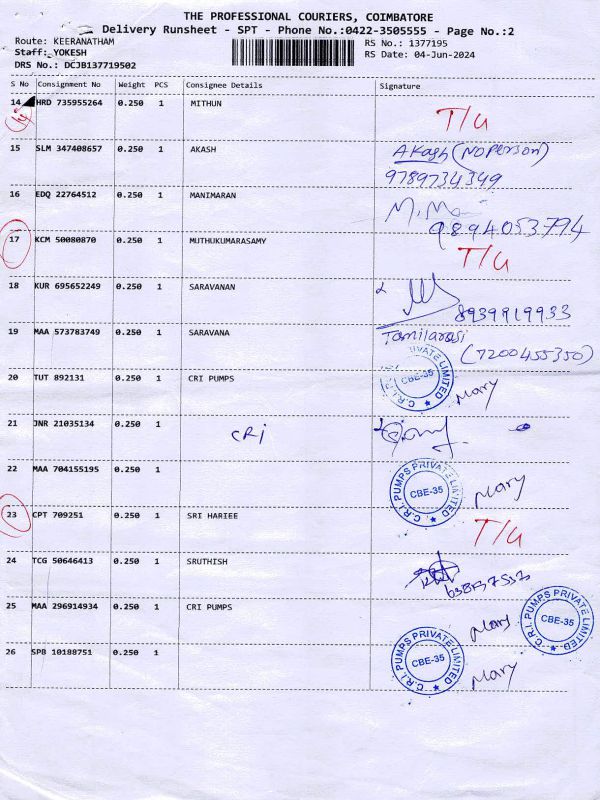 THE PROFESSIONAL COURIERS, COIMBATORE
Delivery Runsheet - SPT - Phone No.:0422-3505555 - Page No.:2
Route: KEERANATHAM RS No.: 1377195
Staff: YOKESH RS Date: 04-Jun-2024
DRS No.: DCJB137719502
S No Consignment No Weight PCS Consignee Details Signature
14 HRD 735955264 0.250 1 MITHUN T/U
15 SLM 347408657 0.250 1 AKASH Akash (No person)
9789734349
16 EDQ 22764512 0.250 1 MANIMARAN
9894053794
17 KCM 50080870 0.250 1 MUTHUKUMARASAMY T/U
18 KUR 695652249 0.250 1 SARAVANAN 8939919933
19 MAA 573783749 0.250 1 SARAVANA Tamilarasi
(7200455350)
20 TUT 892131 0.250 1 CRI PUMPS C.R.I. PUMPS PRIVATE LIMITED CBE-35 Mary
21 JNR 21035134 0.250 1 CRI
22 MAA 704155195 0.250 1 C.R.I. PUMPS PRIVATE LIMITED CBE-35 Mary
23 CPT 709251 0.250 1 SRI HARIEE T/U
24 TCG 50646413 0.250 1 SRUTHISH
25 MAA 296914934 0.250 1 CRI PUMPS Mary C.R.I. PUMPS PRIVATE LIMITED CBE-35
26 SPB 10188751 0.250 1 C.R.I. PUMPS PRIVATE LIMITED CBE-35 Mary